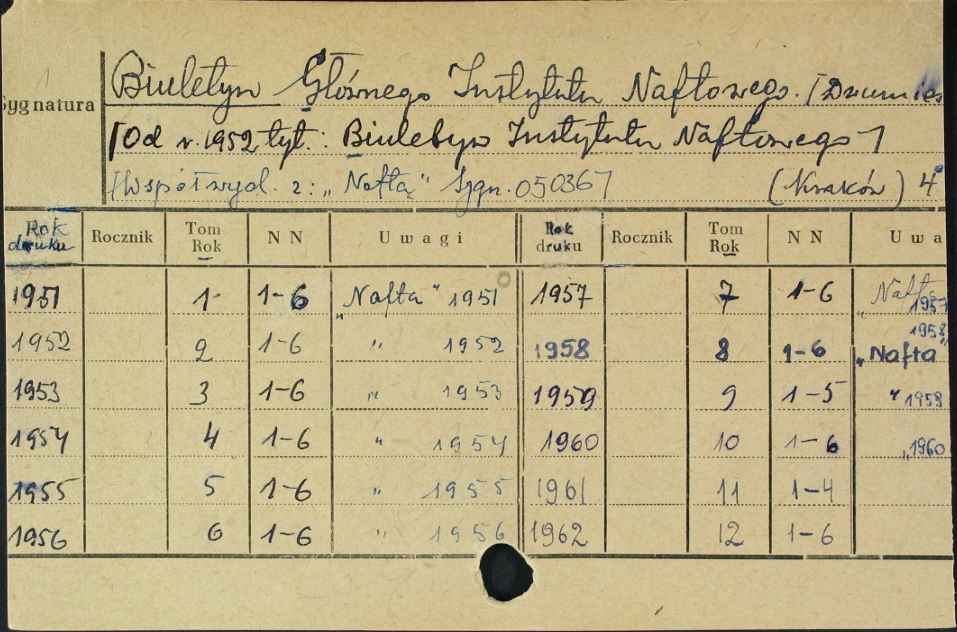 Sygnatura
Biuletyn Głównego Instytutu Naftowego. [Dwumies
[Od r. 1952 tyt.: Biuletyn Instytutu Naftowego]
[Współwyd. z: „Nafta" Sygn. 050367 (Kraków) 4°
Rok druku Rocznik Tom Rok NN Uwagi Rok druku Rocznik Tom Rok NN Uwa
1951 1 1-6 „Nafta" 1951 1957 7 1-6 „Nafta 1957
1952 2 1-6 " 1952 1958 8 1-6 1958 „Nafta"
1953 3 1-6 " 1953 1959 9 1-5 " 1959
1954 4 1-6 " 1954 1960 10 1-6 „ 1960
1955 5 1-6 " 1955 1961 11 1-4
1956 6 1-6 " 1956 1962 12 1-6